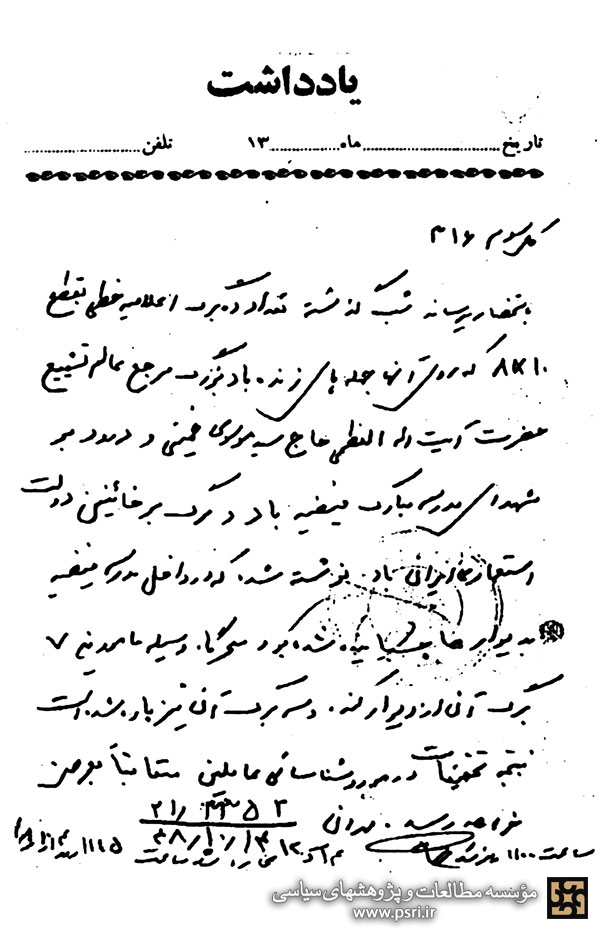 یادداشت
تاریخ ماه ۱۳ تلفن
۳۱۶
باستحضار میرساند شب گذشته تعداد ده برگ اعلامیه خطی بقطع
۱۰×۸ که روی آنها جمله‌های زنده باد بزرگ مرجع عالم تشیع
حضرت آیت اله العظمی حاج سید موسوی خمینی و درود بر
شهدای مدرسه مبارک فیضیه باد و مرگ بر خائنین دولت
استعماری ایران باد. نوشته شده که در داخل مدرسه فیضیه
به دیوارها چسبانیده شده بود سحرگاه وسیله مامورین ۷
برگ آن از دیوار کنده و سه برگ آن نیز پاره شده است
نتیجه تحقیقات در مورد شناسائی عاملین متعاقباً بعرض
خواهد رسید. مهرانی
۲۱/
۴۸/۱۰/۱۳
ساعت ۱۱۰۰ ساعت ۱۱۱۵
مؤسسه مطالعات و پژوهشهای سیاسی
www.psri.ir